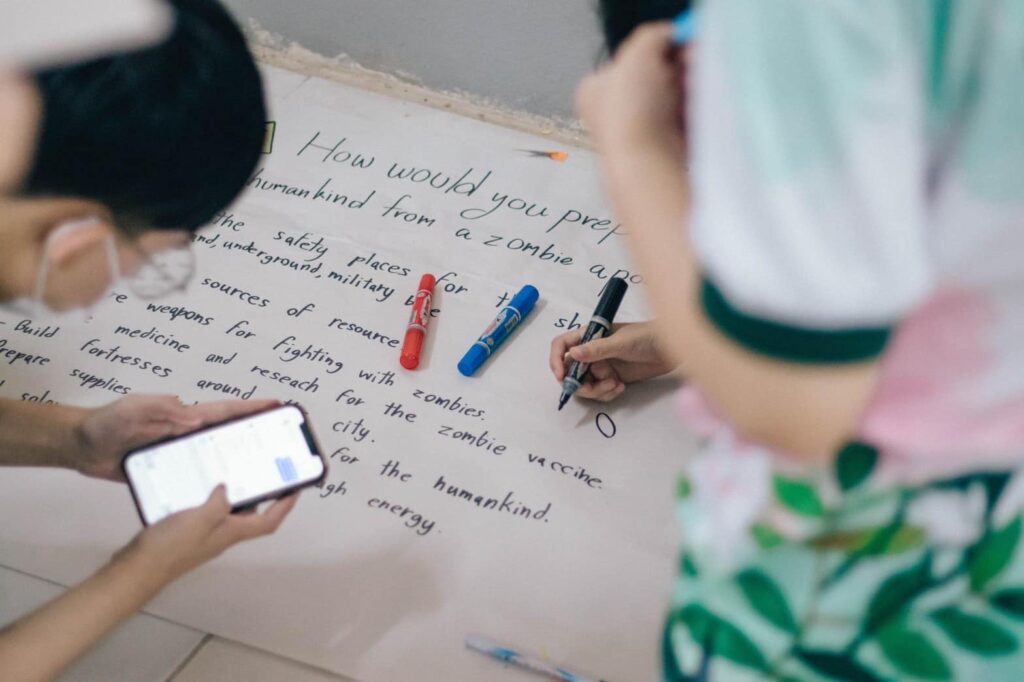 How would you prep
humankind from a zombie apo
the safety places for th
nd, underground, military b
sources of resource
weapons for fighting with zombies.
Build medicine and reseach for the zombie vaccine.
Prepare fortresses around the city.
supplies for the humankind.
energy.
O